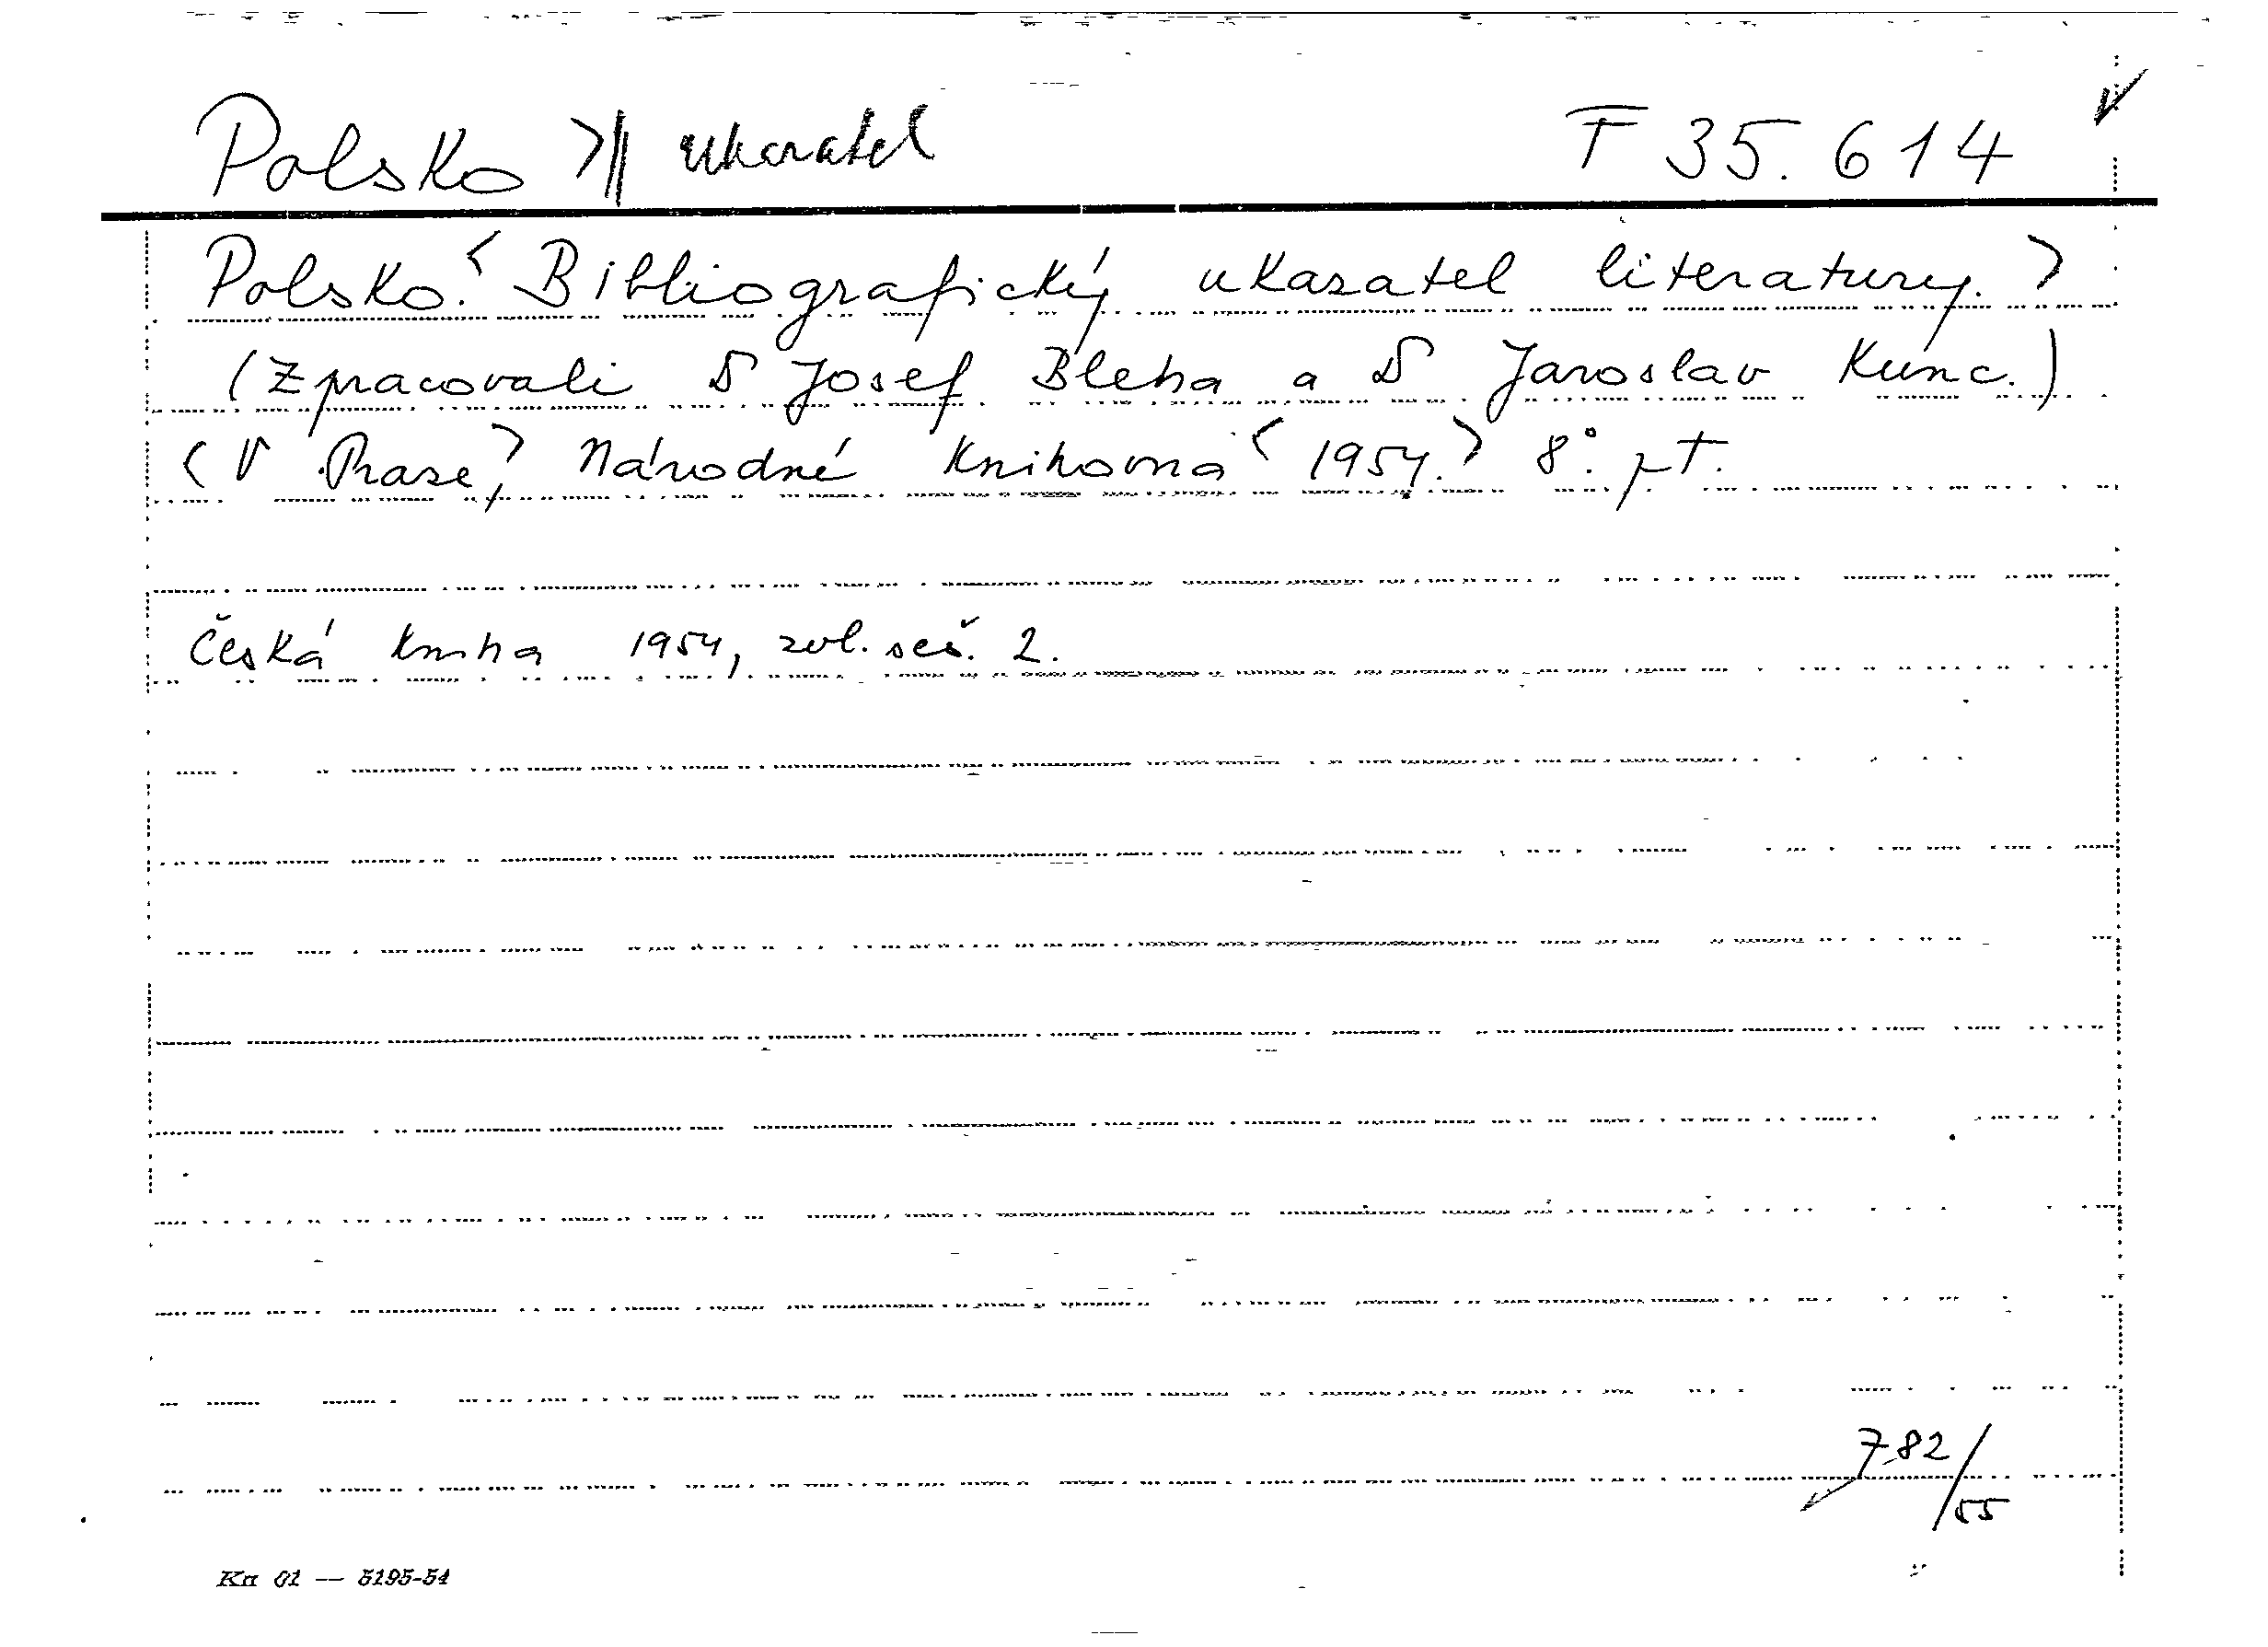 Polsko >|| ukazatel F 35.614
Polsko. <Bibliografický ukazatel literatury.>
(Zpracovali Dr Josef Bleha a Dr Jaroslav Kunc.)
<V Praze,> Národné knihovna <1954.> 8°. pt.
Česká kniha 1954, zvl. seš. 2.
782/55
Kn 01 — 5195-54